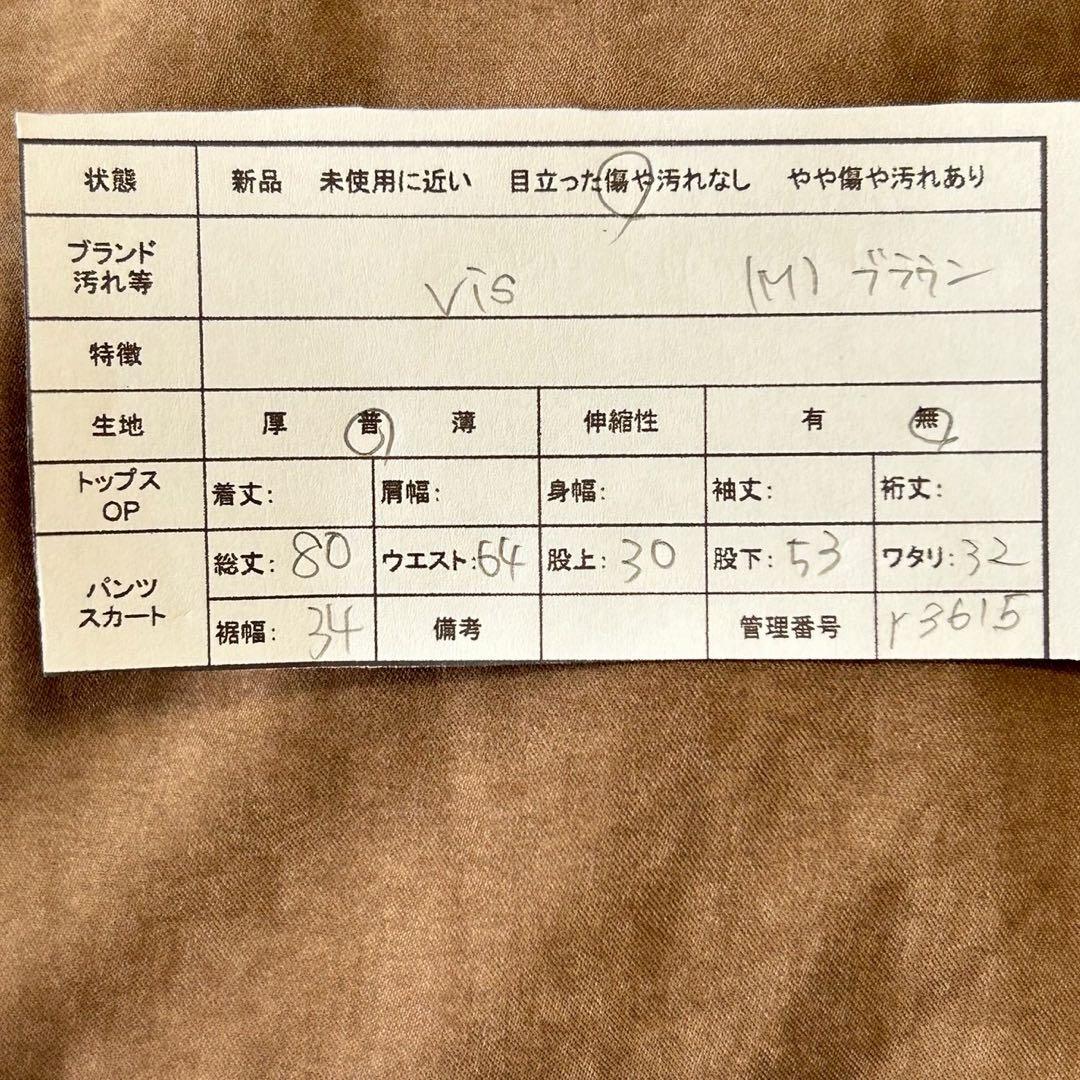 状態 新品 未使用に近い 目立った傷や汚れなし やや傷や汚れあり
ブランド
汚れ等 vis (M) ブラウン
特徴
生地 厚 普 薄 伸縮性 有 無
トップス
OP 着丈: 肩幅: 身幅: 袖丈: 裄丈:
パンツ
スカート 総丈: 80 ウエスト: 64 股上: 30 股下: 53 ワタリ: 32
裾幅: 34 備考 管理番号 r3615